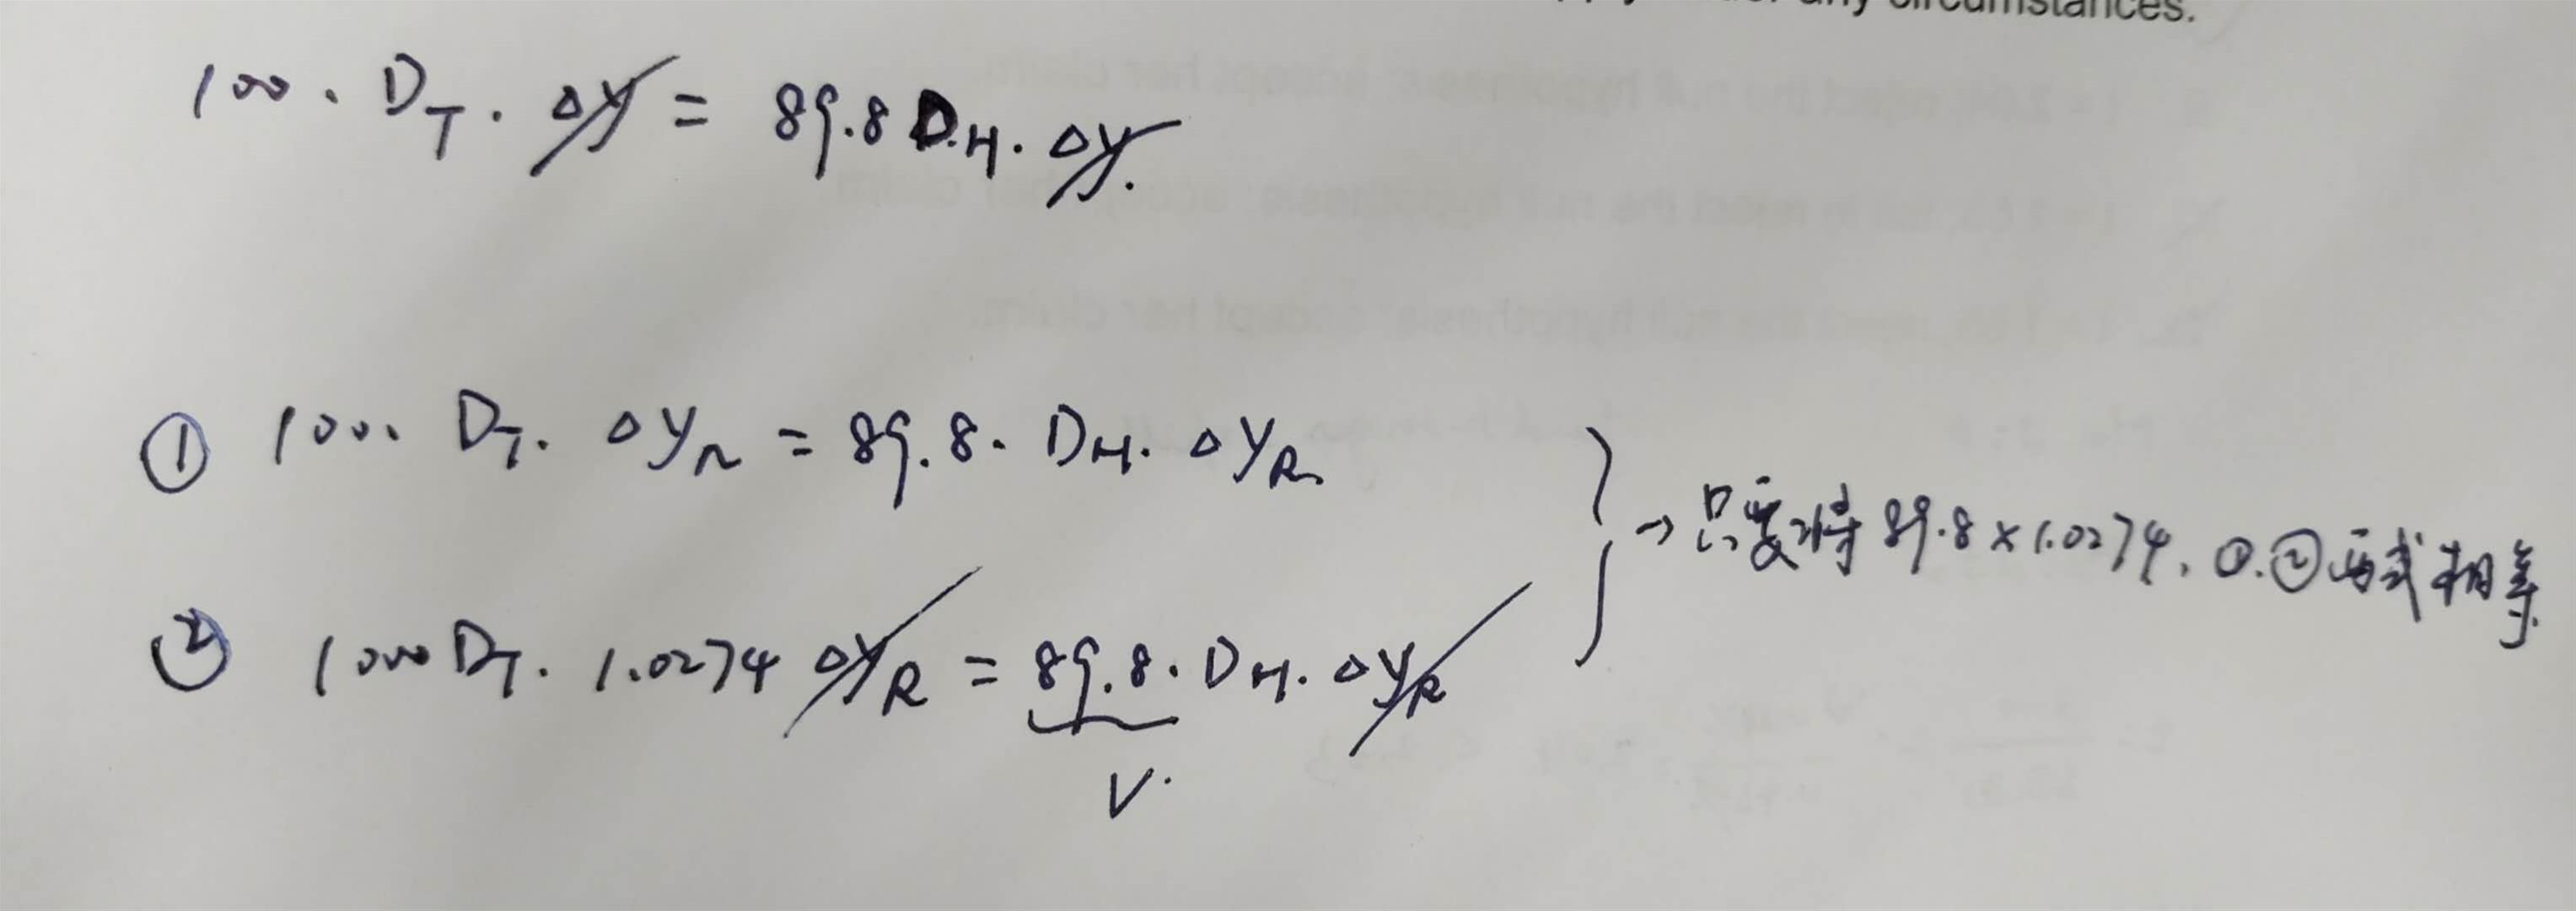 any circumstances.
100 · D_T · Δy = 89.8 D.H. Δy.
① 100. D_T. Δy_N = 89.8. D_H. Δy_R.
② 100 D_T. 1.0274 Δy_R = 89.8. D_H. Δy_R
V.
→ 只要将 89.8 × 1.0274, ①.② 两式相等.